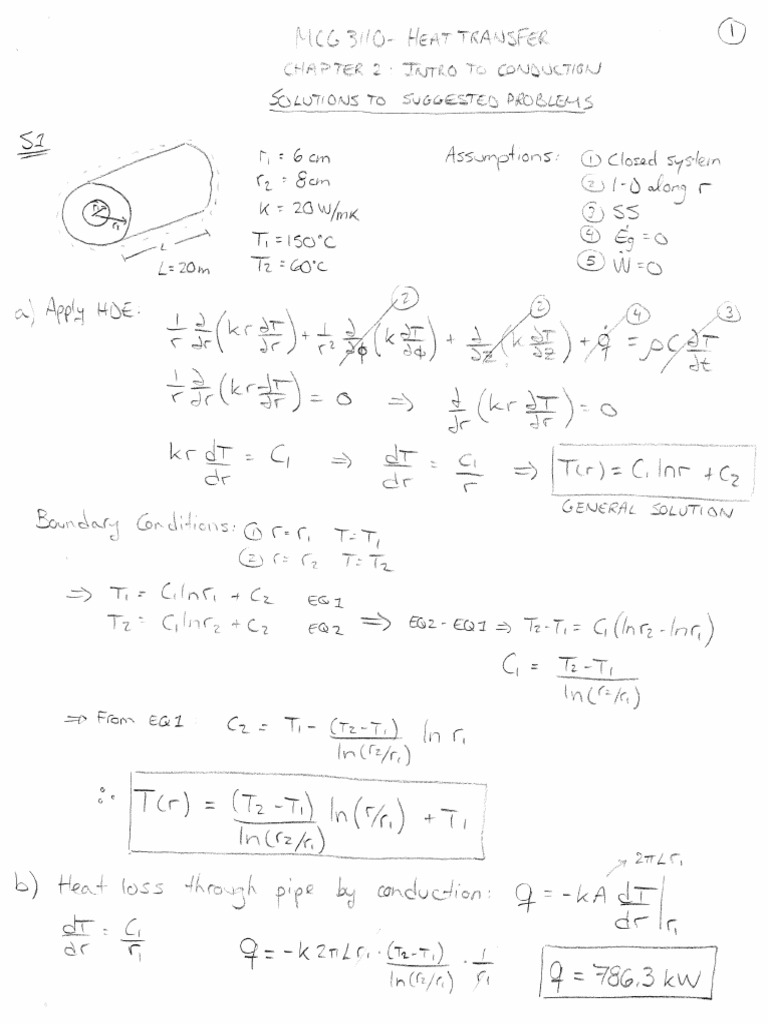 ①
MCG 3110 - HEAT TRANSFER
CHAPTER 2 - INTRO TO CONDUCTION
SOLUTIONS TO SUGGESTED PROBLEMS
S1
r₁
L
L = 20m
r₁ = 6 cm
r₂ = 8 cm
k = 20 W/mK
T₁ = 150°C
T₂ = 60°C
Assumptions: ① Closed system
② 1-D along r
③ SS
④ Ėg = 0
⑤ Ẇ = 0
a) Apply HDE:
② ② ④ ③
1/r ∂/∂r (kr ∂T/∂r) + 1/r² ∂/∂φ (k ∂T/∂φ) + ∂/∂z (k ∂T/∂z) + q̇ = ρC ∂T/∂t
1/r ∂/∂r (kr ∂T/∂r) = 0 => ∂/∂r (kr ∂T/∂r) = 0
kr dT/dr = C₁ => dT/dr = C₁/r => T(r) = C₁ ln r + C₂
GENERAL SOLUTION
Boundary Conditions: ① r = r₁ T = T₁
② r = r₂ T = T₂
=> T₁ = C₁ ln r₁ + C₂ EQ1
T₂ = C₁ ln r₂ + C₂ EQ2 => EQ2 - EQ1 => T₂ - T₁ = C₁ (ln r₂ - ln r₁)
C₁ = T₂ - T₁ / ln(r₂/r₁)
=> From EQ1 C₂ = T₁ - (T₂ - T₁) / ln(r₂/r₁) ln r₁
∴ T(r) = (T₂ - T₁) / ln(r₂/r₁) ln(r/r₁) + T₁
b) Heat loss through pipe by conduction: q = -kA dT/dr |r₁
2πLr₁
dT/dr = C₁/r₁
q = -k 2πLr₁ · (T₂ - T₁) / ln(r₂/r₁) · 1/r₁
q = 786.3 kW